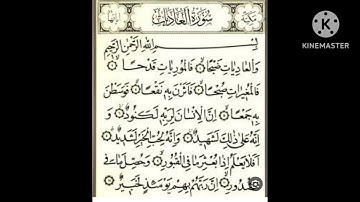 سورة العاديات
بسم الله الرحمن الرحيم
والعاديات ضبحا فالموريات قدحا
فالمغيرات صبحا فأثرن به نقعا فوسطن
به جمعا إن الإنسان لربه لكنود
وإنه على ذلك لشهيد وإنه لحب الخير لشديد
أفلا يعلم إذا بعثر ما في القبور وحصل ما في
الصدور إن ربهم بهم يومئذ لخبير
KINEMASTER